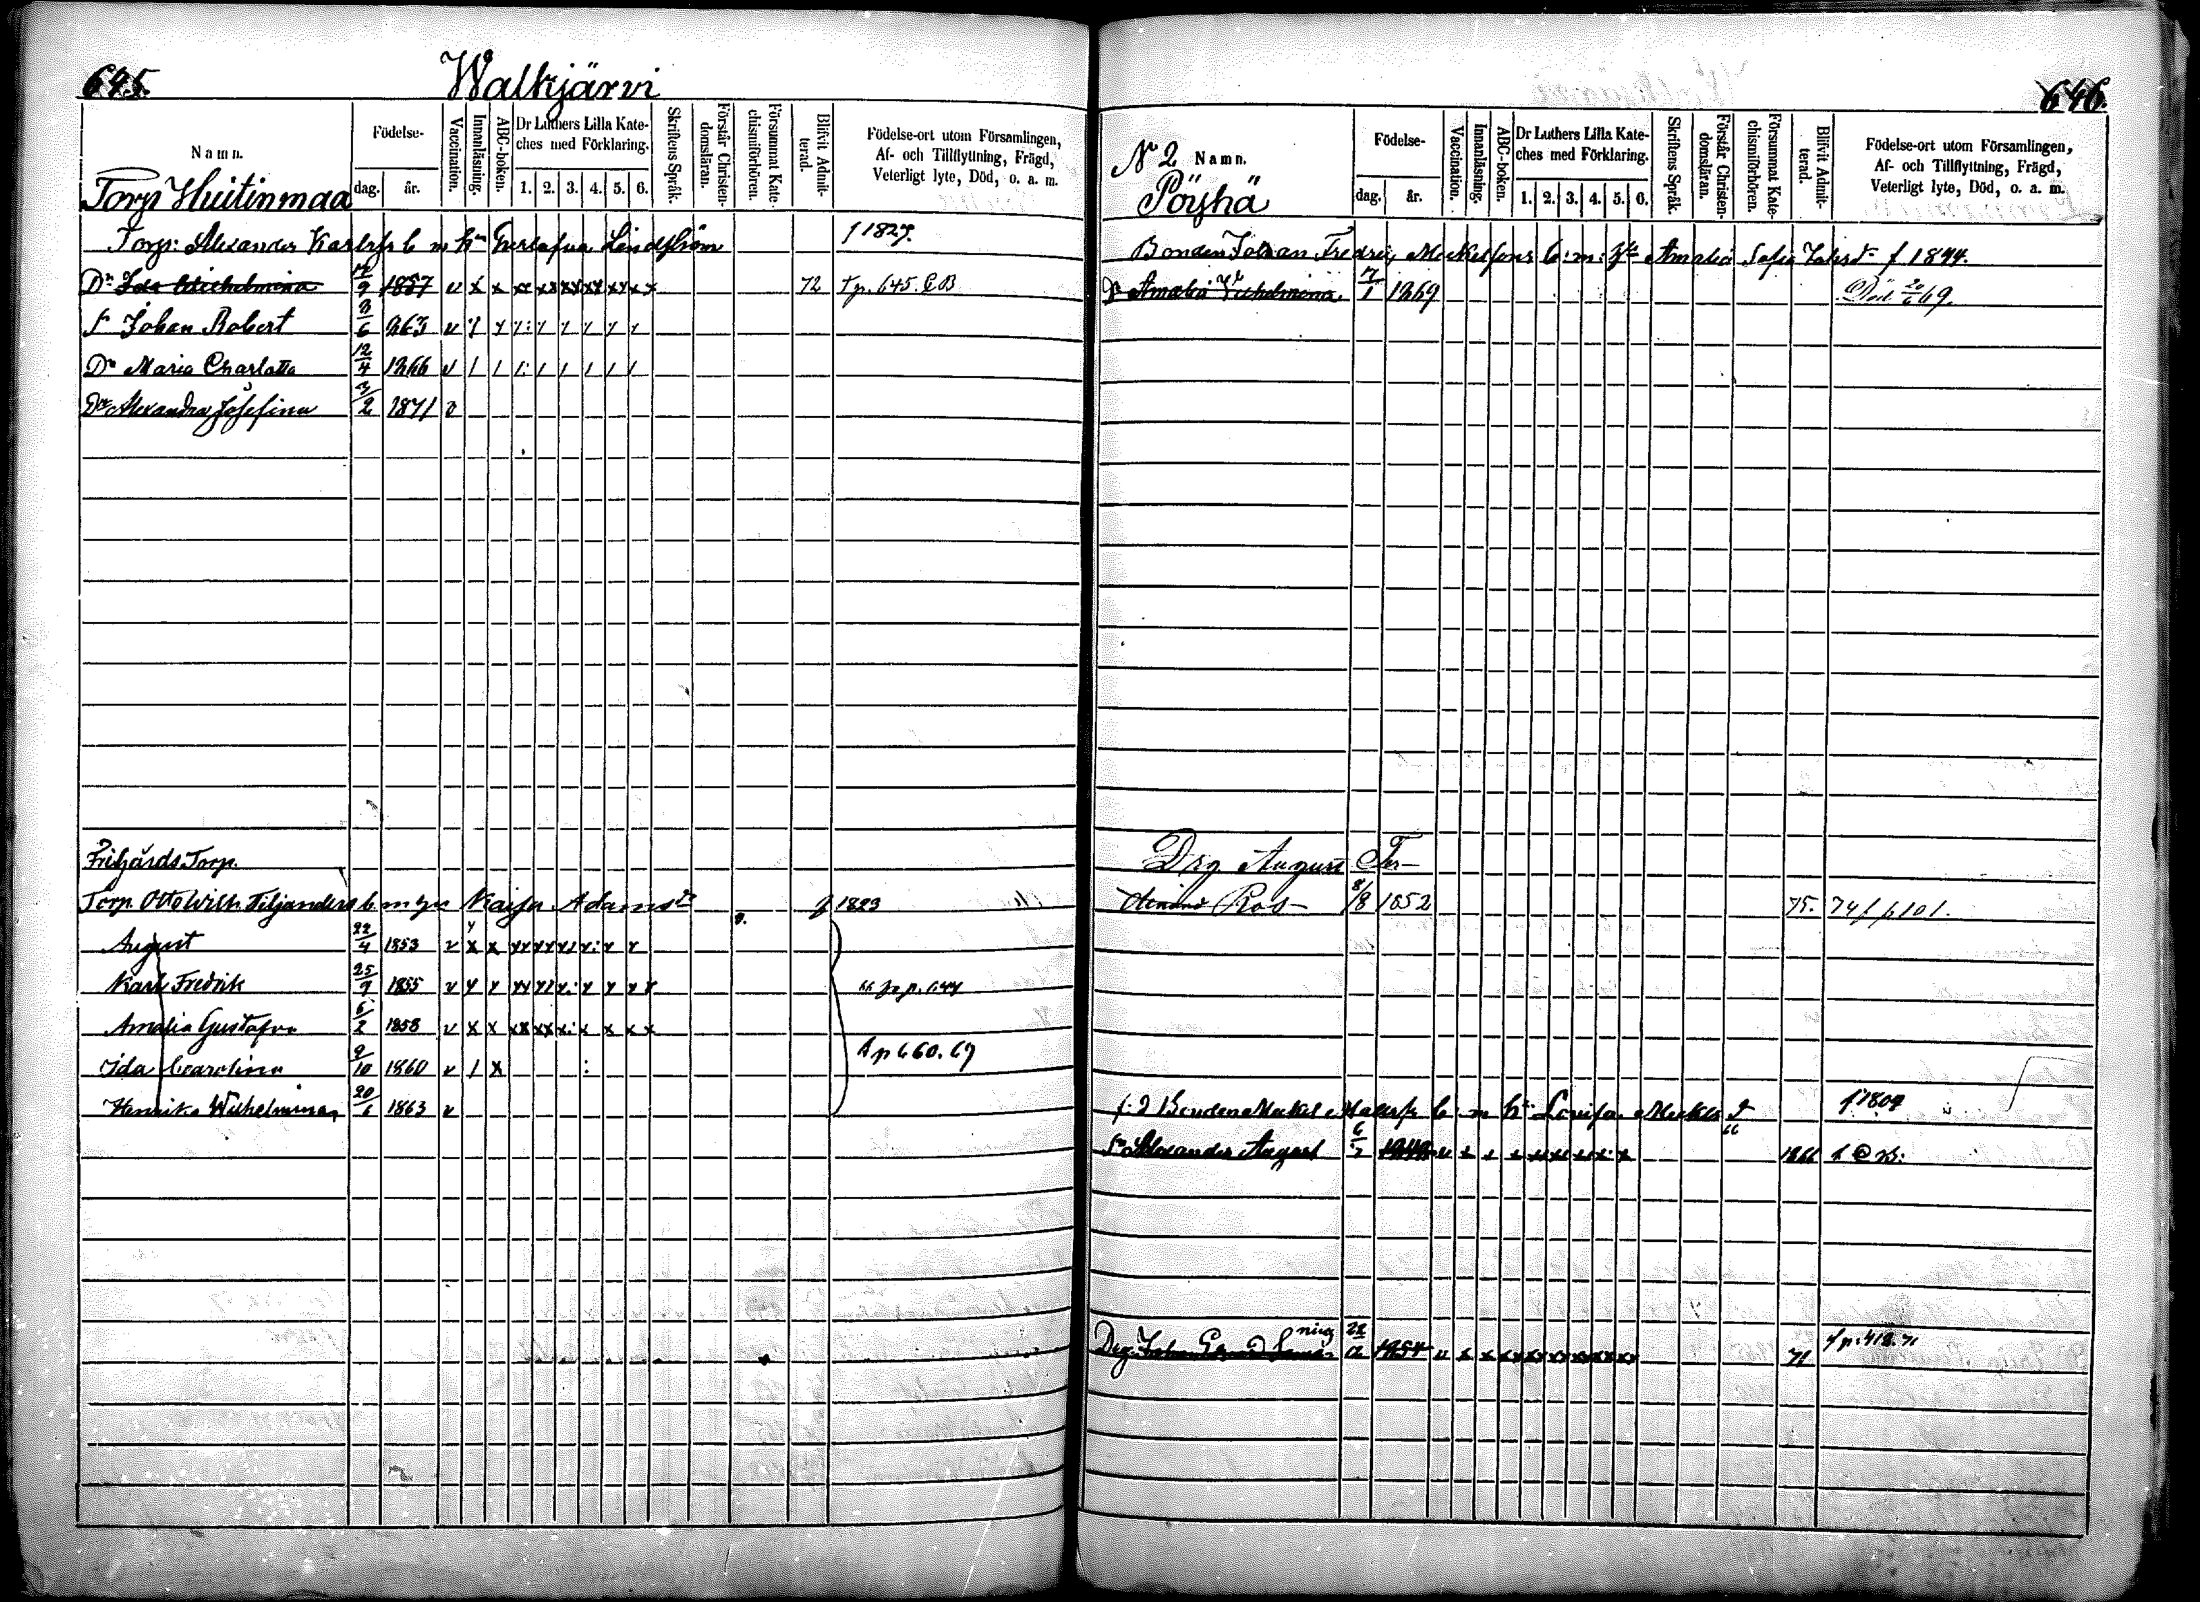 645.
Walkjärvi
Namn.
Födelse-
dag.
år.
Vaccination.
Innanläsning.
ABC-boken.
Dr Luthers Lilla Kate-
ches med Förklaring.
1. 2. 3. 4. 5. 6.
Skriftens Språk.
Förstår Christen-
domsläran.
Försummat Kate-
chismiförhören.
Blifvit Admit-
terad.
Födelse-ort utom Församlingen,
Af- och Tillflyttning, Frägd,
Veterligt lyte, Död, o. a. m.
Torp Huitinmaa
Torp: Alexander Karlsfs b m hn Gustafva Lindström f 1827.
Dr Ida Wilhelmina 9 1857 v x x xx xx xx xx xx x 72 Tp. 645. CB
Sn Johan Robert 3/6 863 v
Dr Maria Charlotta 12/4 1866 v
Dr Alexandra Josefina 3/2 1871 v
Frigårds Torp.
Torp. Otto Wilh. Filjanders b. m Kaisa Adamsdr f 1823
August 22/4 1853 v x x
Karl Fredrik 25/7 1855 v
Amalia Gustafva 6/2 1858 v x x
p. 644
Ida Carolina 9/10 1860 v / x
Ap 660. 67
Henrika Wilhelmina 20/6 1863 v
646.
No 2 Namn.
Födelse-
dag.
år.
Vaccination.
Innanläsning.
ABC-boken.
Dr Luthers Lilla Kate-
ches med Förklaring.
1. 2. 3. 4. 5. 6.
Skriftens Språk.
Förstår Christen-
domsläran.
Försummat Kate-
chismiförhören.
Blifvit Admit-
terad.
Födelse-ort utom Församlingen,
Af- och Tillflyttning, Frägd,
Veterligt lyte, Död, o. a. m.
Pöyhä
Bonden Johan Fredric Mickelsons b: m: Amalia Sofia f 1844.
Dr Amalia Vilhelmina 7/1 1869 Död 20/6 69.
Drg. August
Rob 8/8 1852 75. 74 f p 101.
Bonden Mickel b m hn Lovisa Mickels f 1804
66
Sn Alexander August 6 1866
Drg. Johan 22/12 1854 v x x 71
p. 418. 71